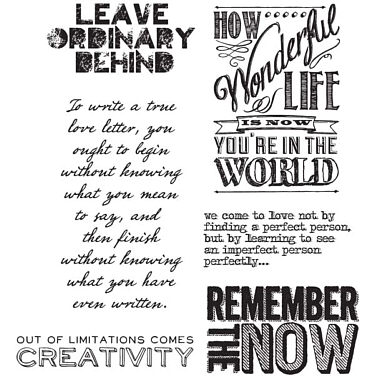 LEAVE
ORDINARY
BEHIND
To write a true
love letter, you
ought to begin
without knowing
what you mean
to say, and
then finish
without knowing
what you have
even written.
OUT OF LIMITATIONS COMES
CREATIVITY
HOW
Wonderful
LIFE
IS NOW
YOU'RE IN THE
WORLD
we come to love not by
finding a perfect person,
but by learning to see
an imperfect person
perfectly...
REMEMBER
THE
NOW